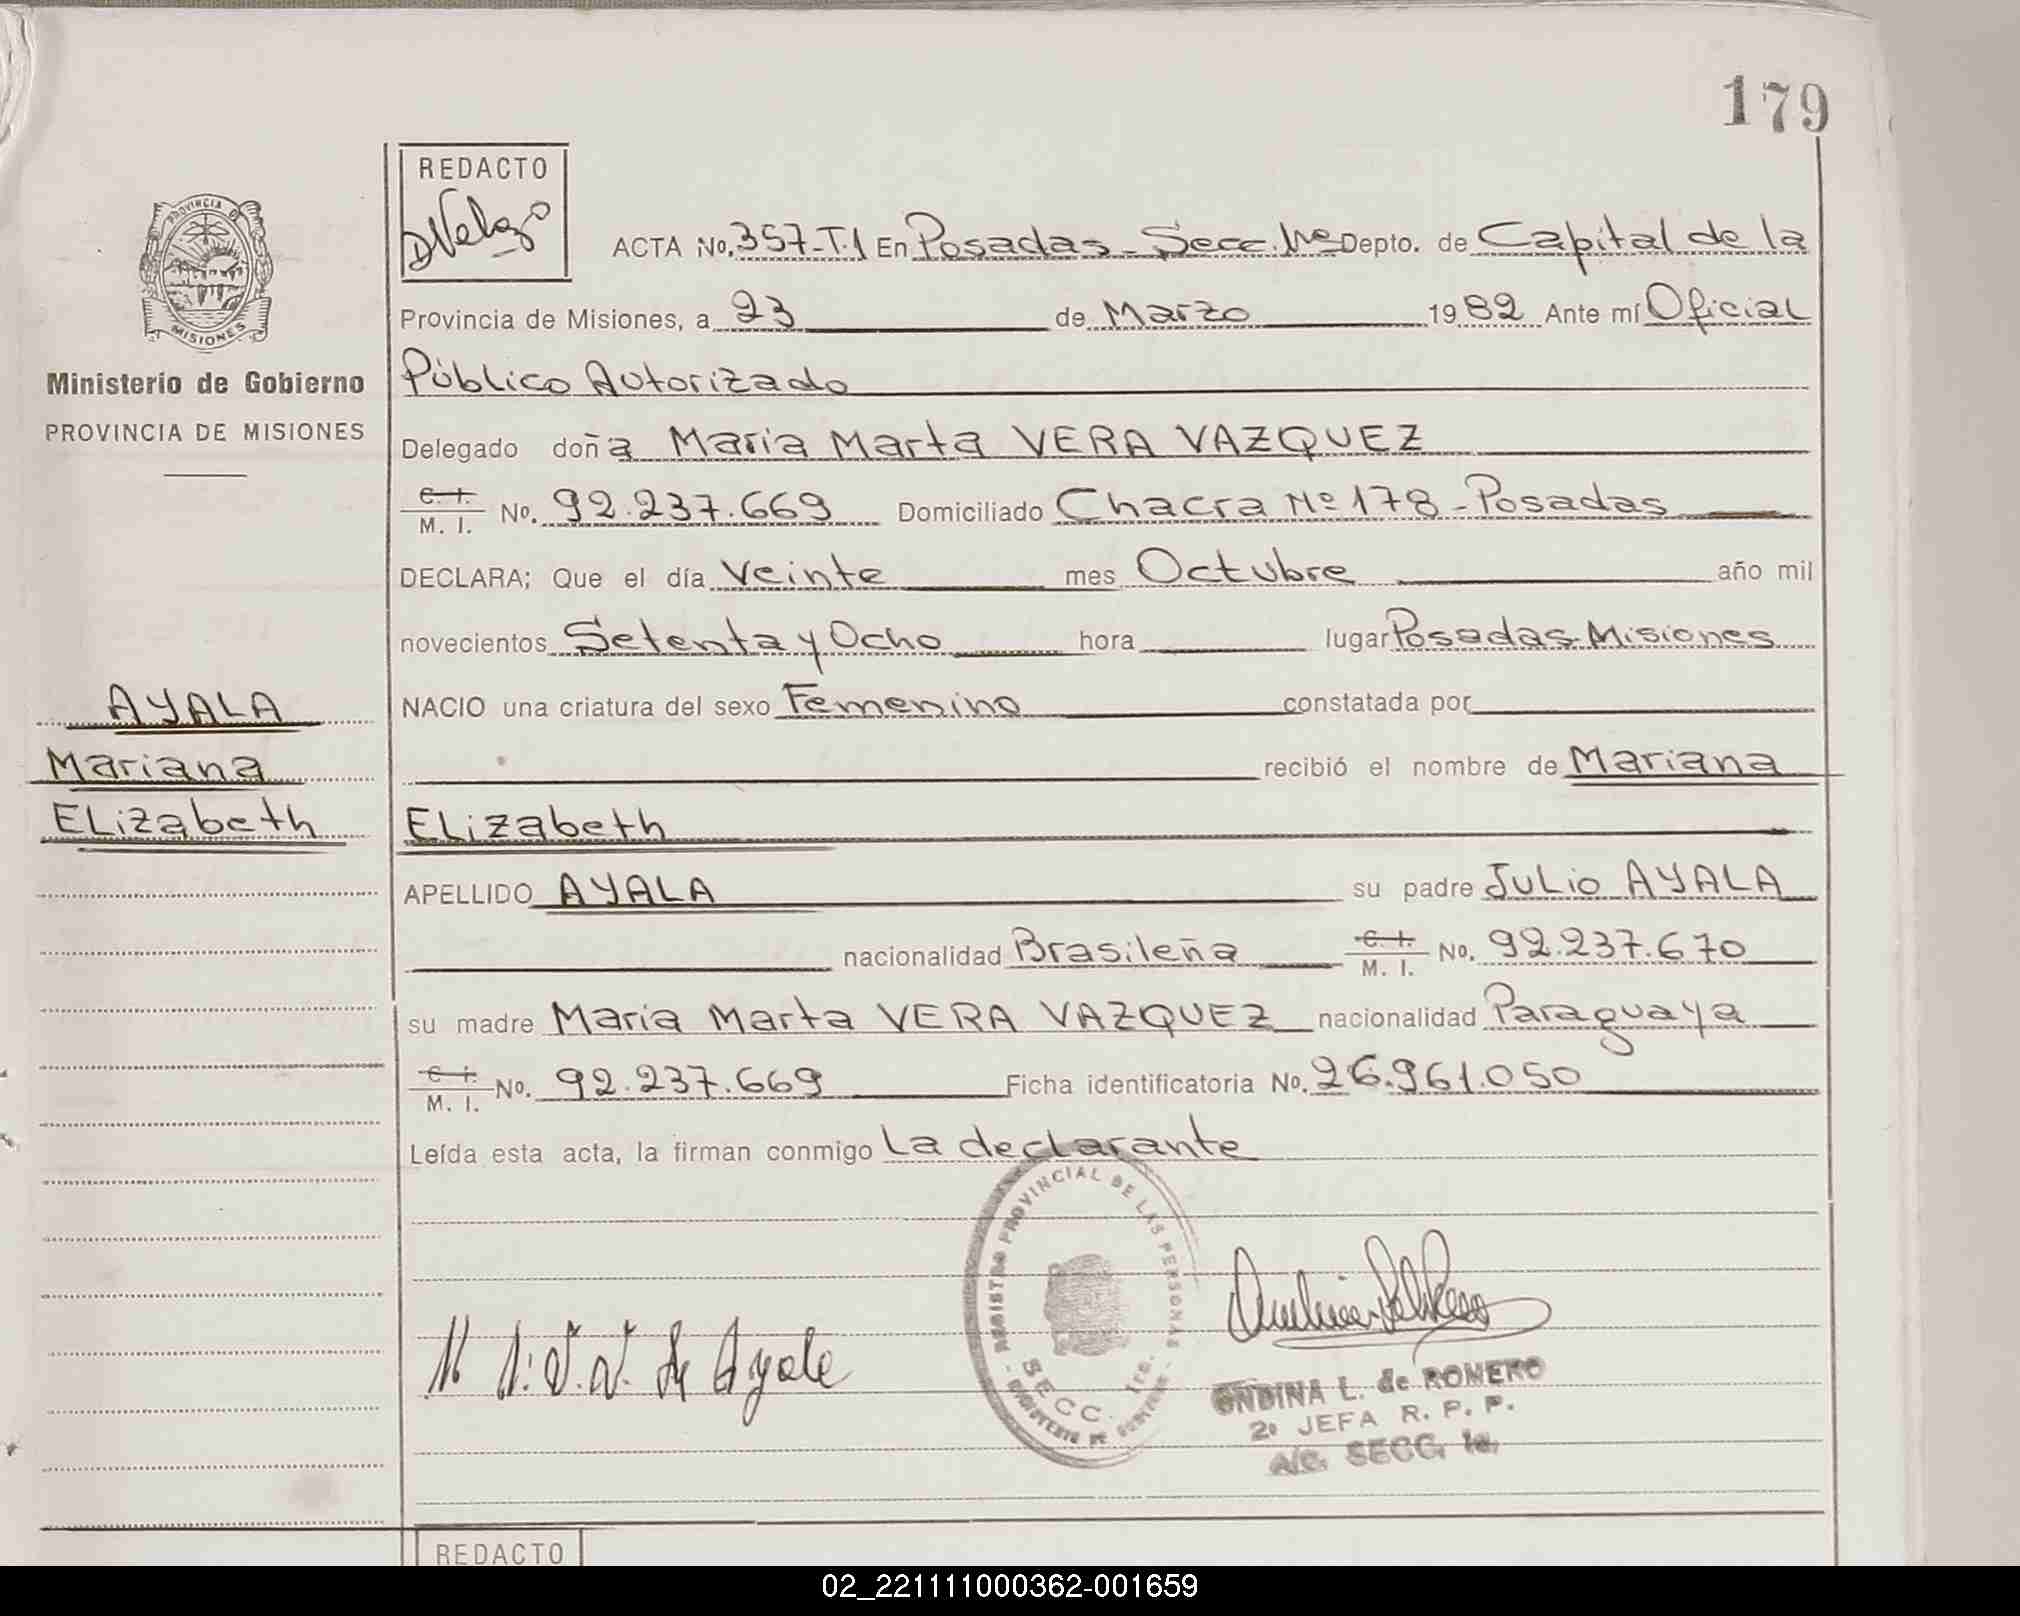 179
REDACTO
DVelazo
ACTA No. 357-T.1 En Posadas-Secc. 1ra Depto. de Capital de la
PROVINCIA DE MISIONES
Provincia de Misiones, a 23 de Marzo 1982 Ante mí Oficial
Ministerio de Gobierno
PROVINCIA DE MISIONES
Público Autorizado
Delegado doña Maria Marta VERA VAZQUEZ
C. I. M. I. No. 92.237.669 Domiciliado Chacra Nº 178-Posadas
DECLARA; Que el día Veinte mes Octubre año mil
novecientos Setenta y Ocho hora lugar Posadas-Misiones
AYALA
Mariana
ELizabeth
NACIO una criatura del sexo Femenino constatada por
recibió el nombre de Mariana
ELizabeth
APELLIDO AYALA su padre JuLio AYALA
nacionalidad Brasileña C. I. M. I. No. 92.237.670
su madre Maria Marta VERA VAZQUEZ nacionalidad Paraguaya
C. I. M. I. No. 92.237.669 Ficha identificatoria No. 26.961.050
Leída esta acta, la firman conmigo La declarante
REGISTRO PROVINCIAL DE LAS PERSONAS
SECC. 1ra.
de Ayala
ONDINA L. de ROMERO
2ª JEFA R. P. P.
A/C. SECC. 1a.
REDACTO
02_221111000362-001659